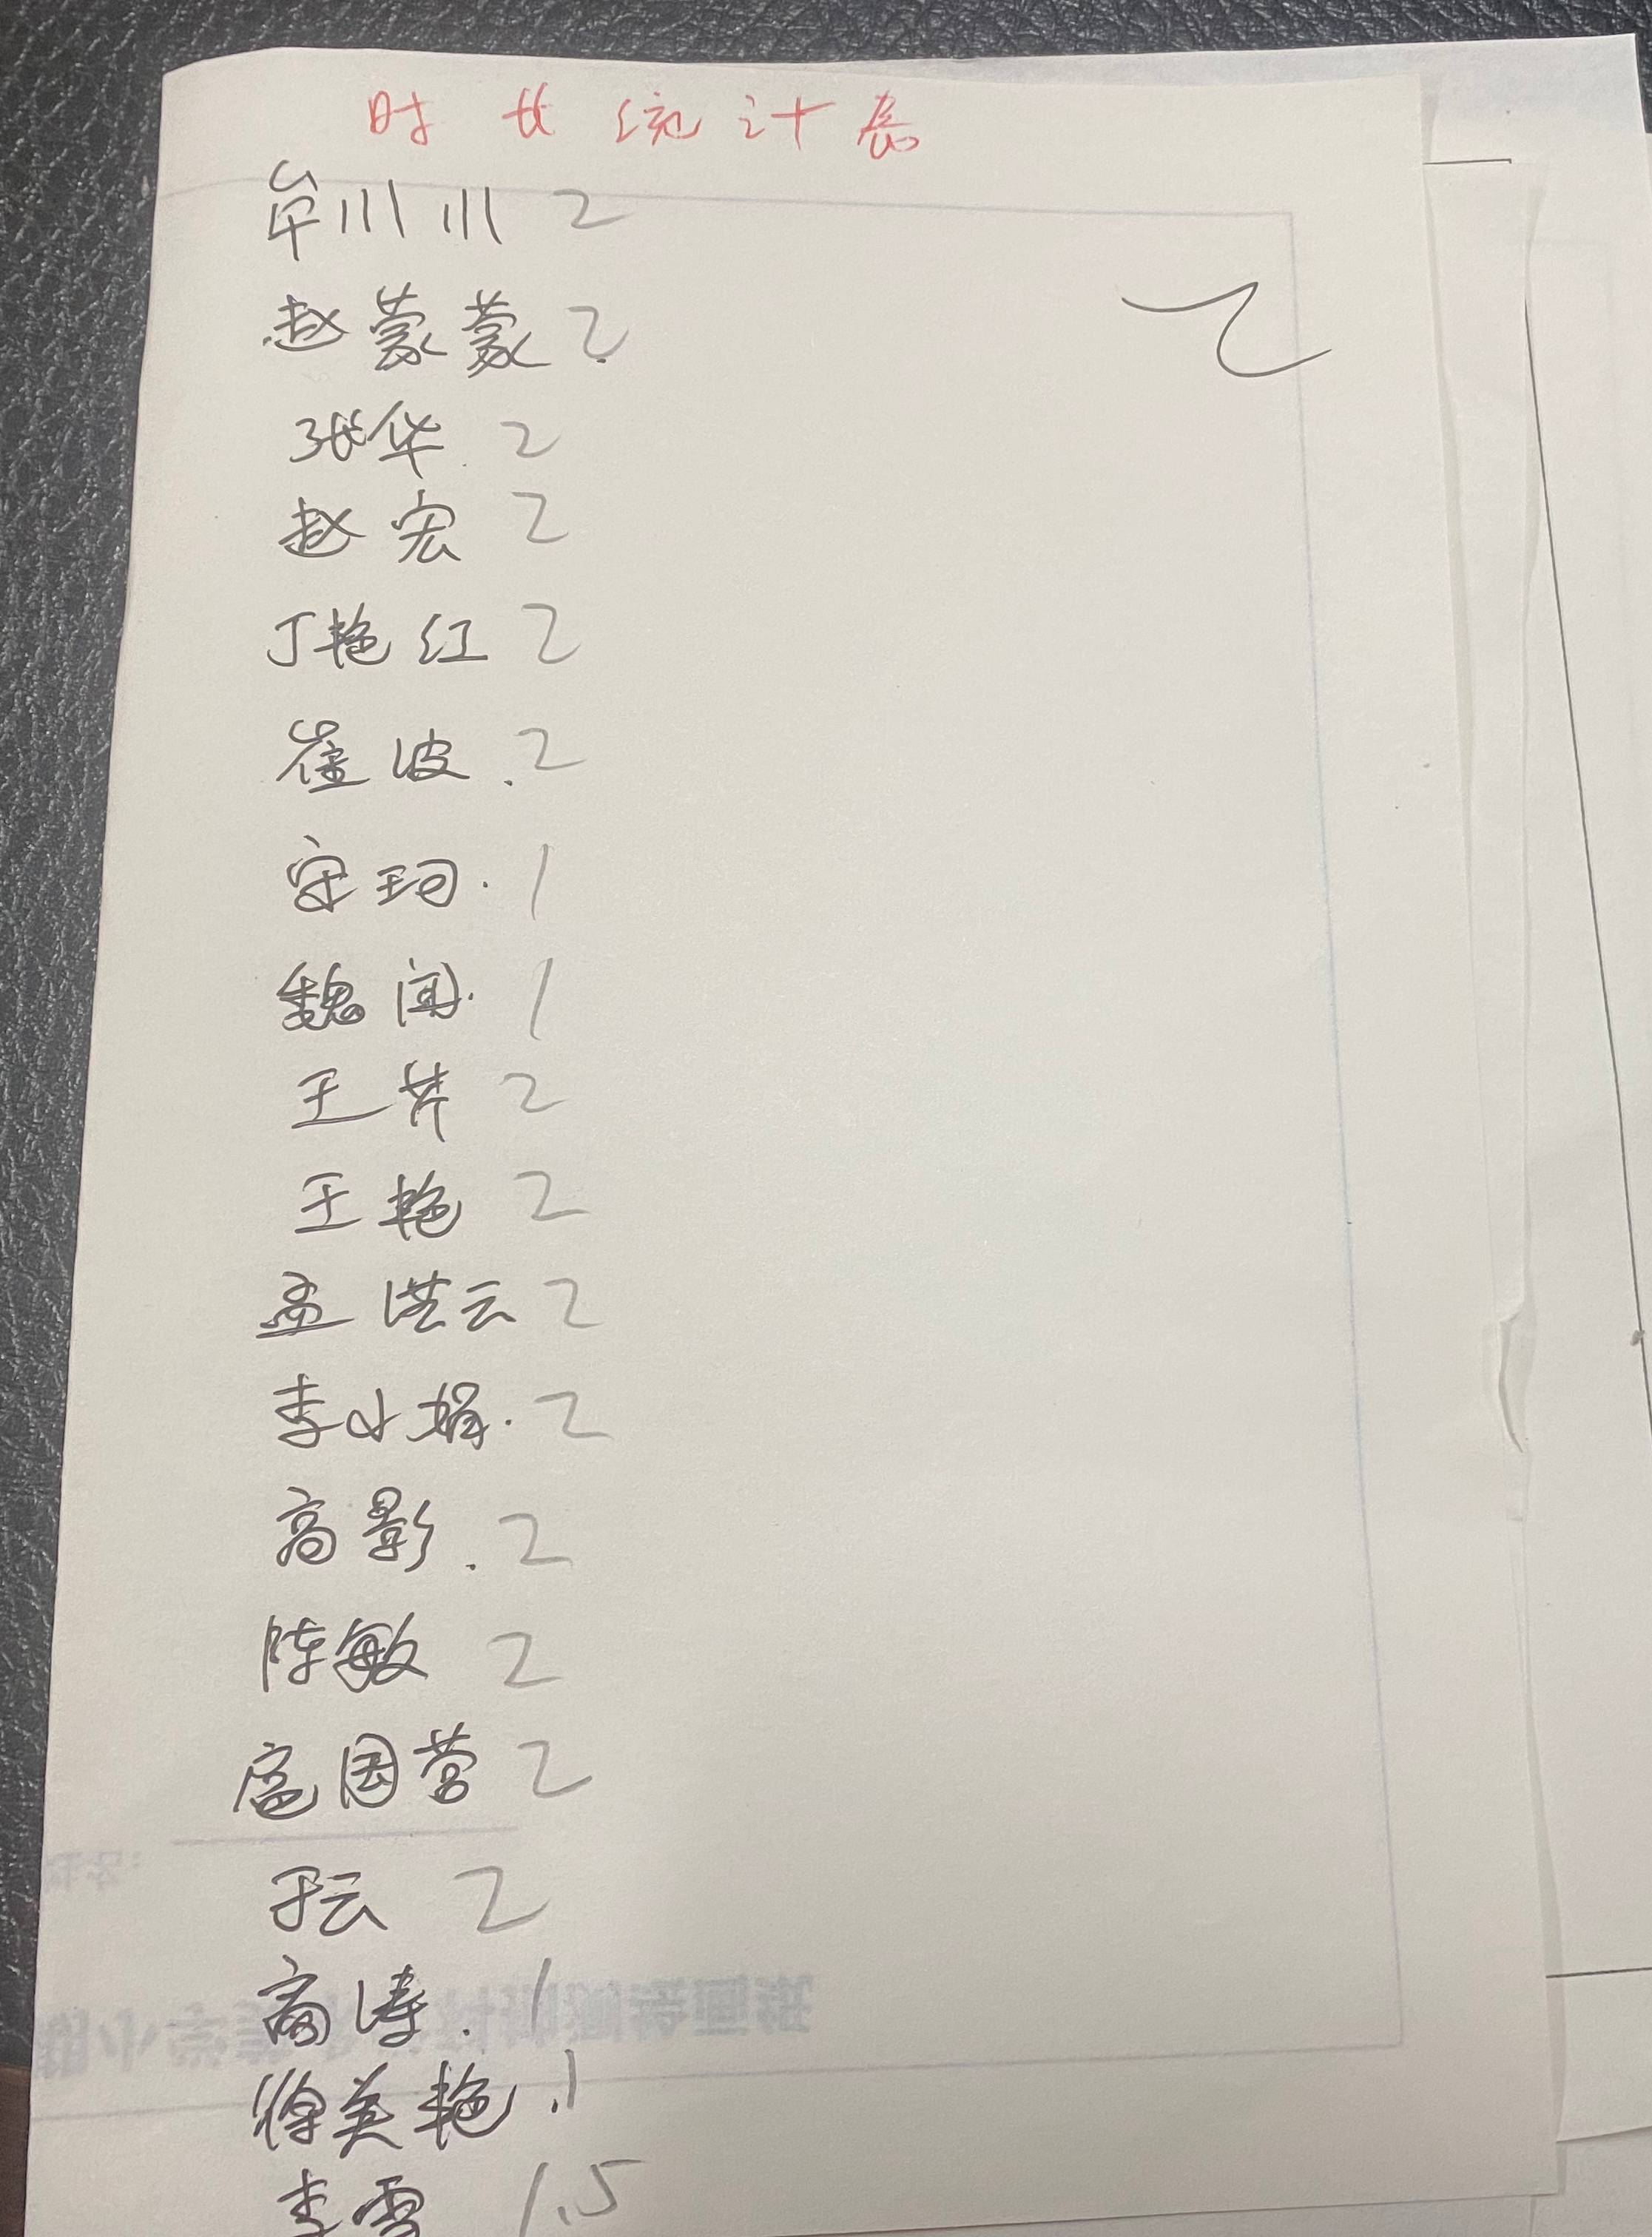 时长统计表
牟川川 2
赵蒙蒙 2
2
张华 2
赵宏 2
丁艳红 2
崔波.2
宋珂.1
魏闻.1
王芹 2
王艳 2
孟洪云 2
李小娟.2
高影.2
陈敏 2
扈国营 2
于云 2
高涛.1
徐美艳.1
李雪 1.5